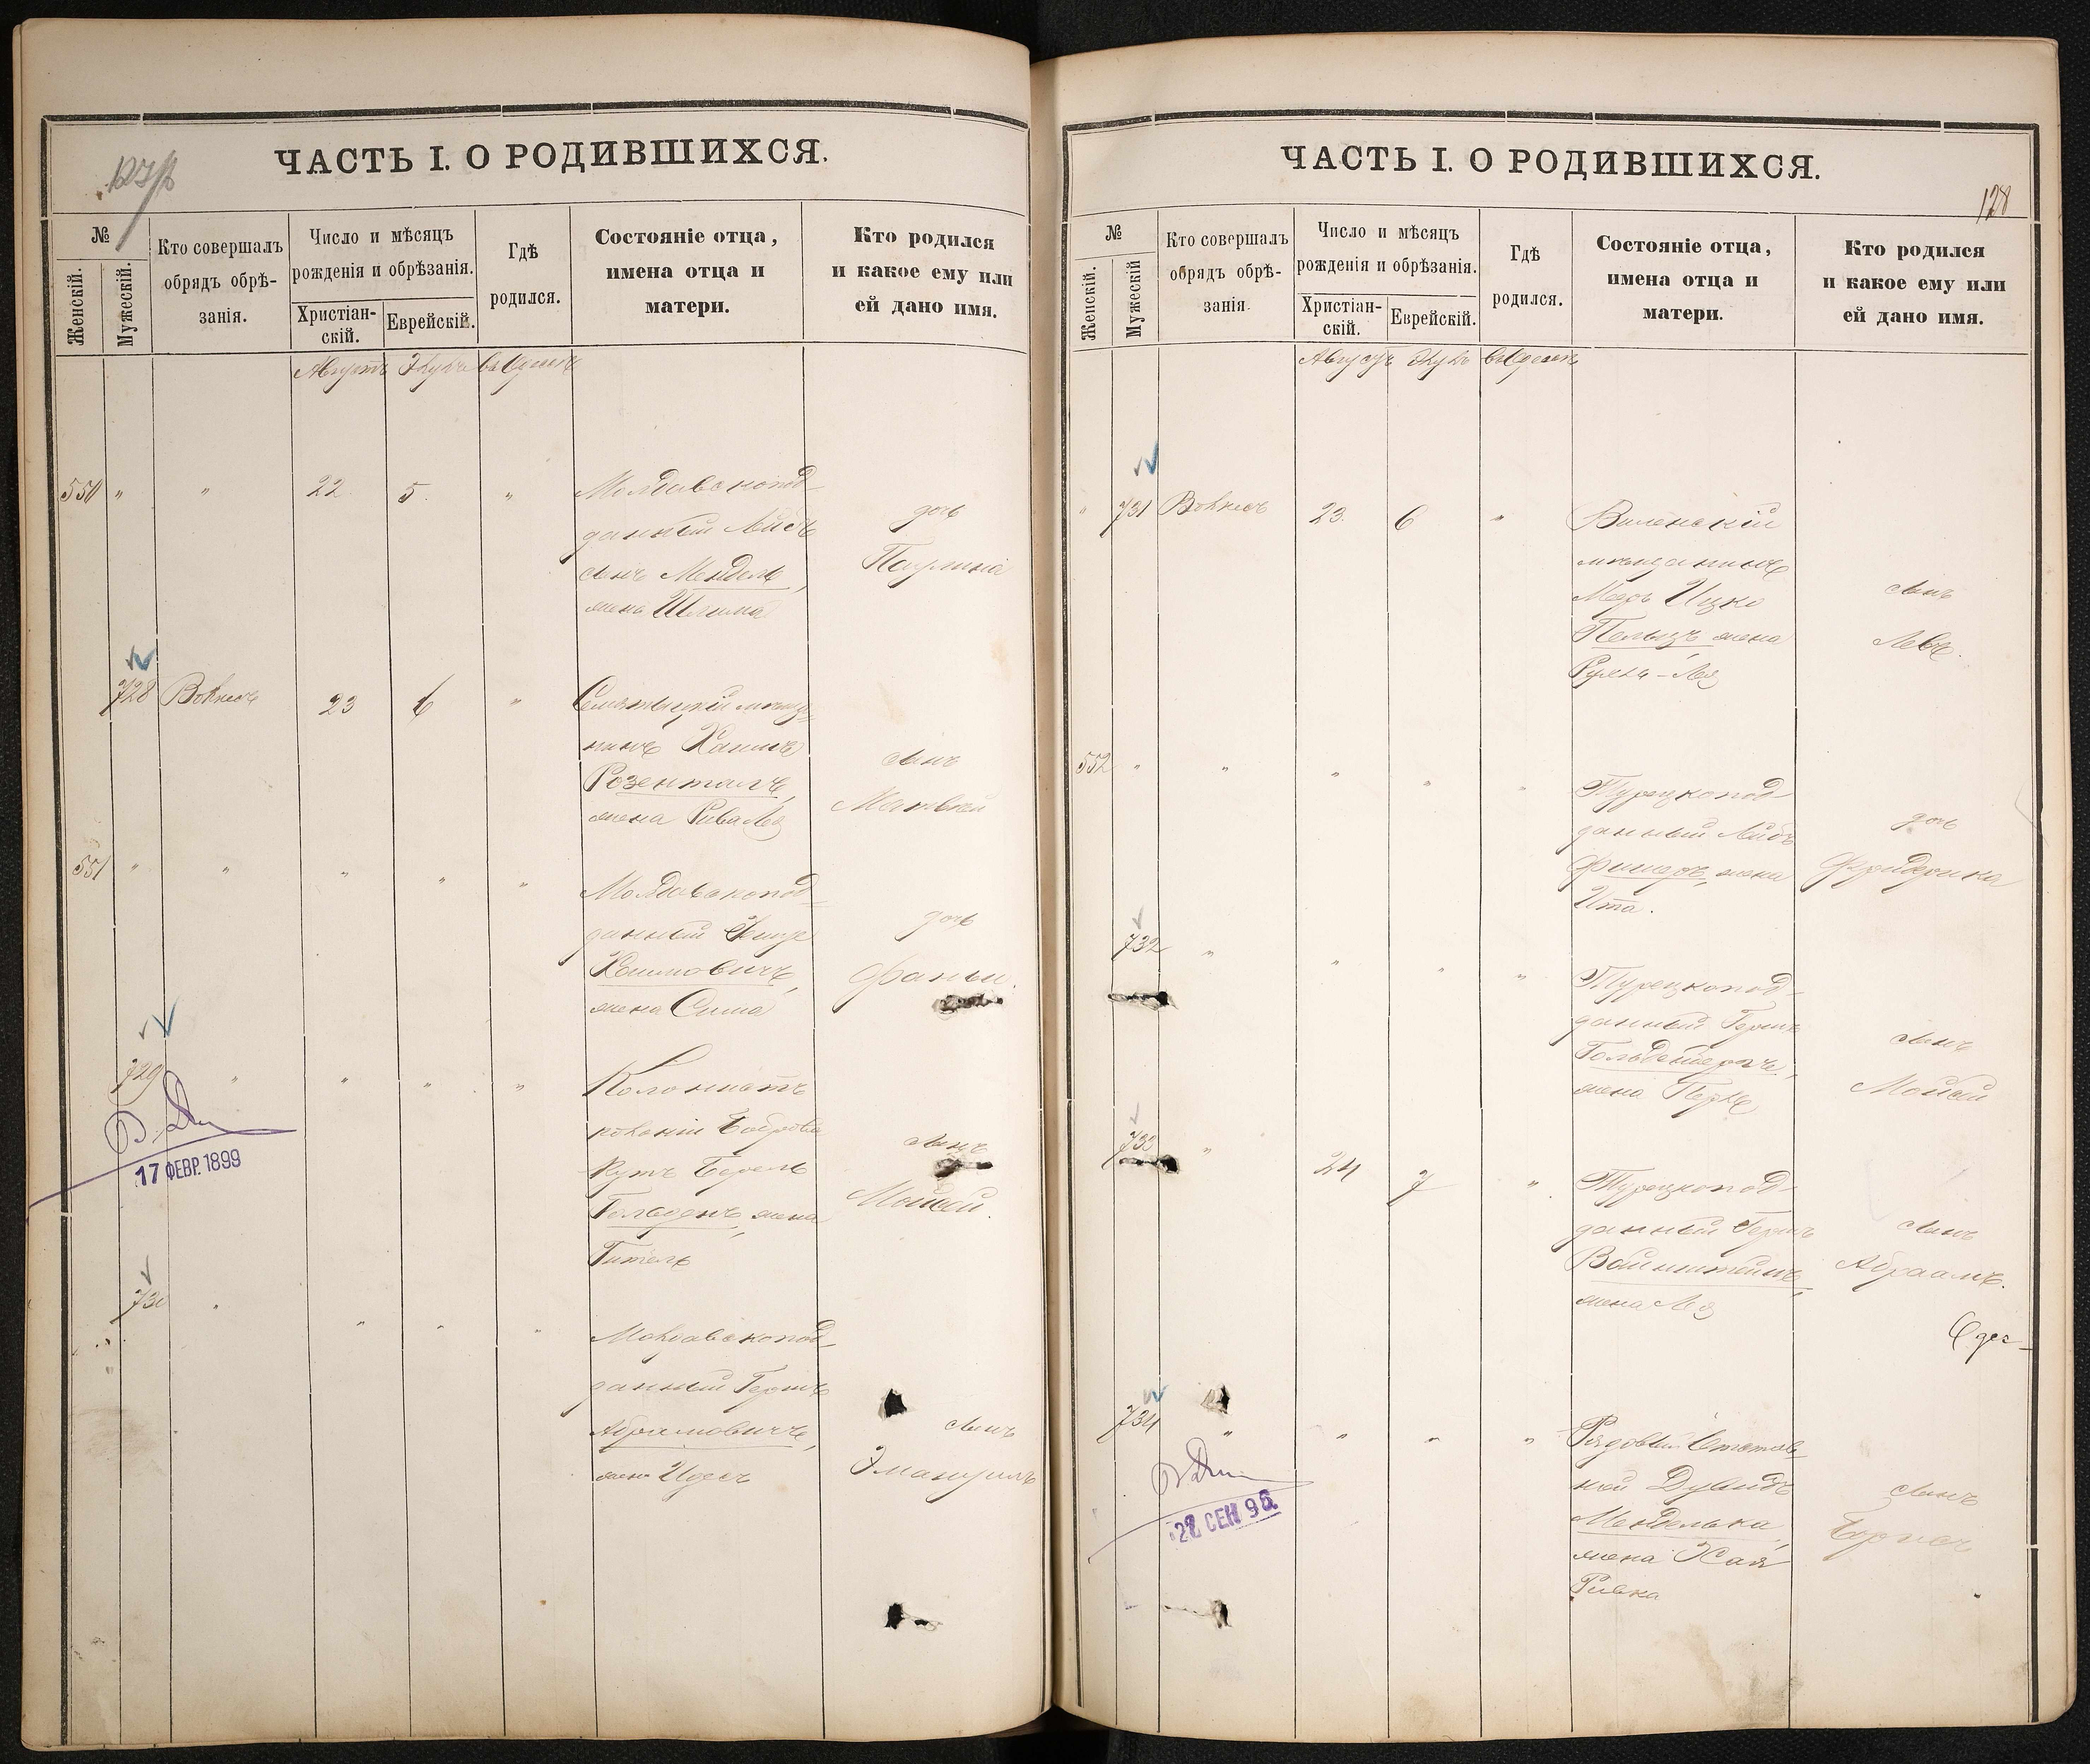 127/b
ЧАСТЬ I. О РОДИВШИХСЯ.
№
Женскій.
Мужескій.
Кто совершалъ
обрядъ обрѣ-
занія.
Число и мѣсяцъ
рожденія и обрѣзанія.
Христіан-
скій.
Еврейскій.
Гдѣ
родился.
Состояніе отца,
имена отца и
матери.
Кто родился
и какое ему или
ей дано имя.
Августъ Элулъ въ Одессѣ
550 " " 22 5. " Молдавскопод-
данный Лейбъ
сынъ Мендель,
жена Шлима
дочь
Паулина
728 23 6 "
нинъ Хаимъ
Розенталъ,
жена Рива Лея
сынъ
Матвей
551 " " " " " Молдавскопод=
данный
Хаимовичъ,
жена Сима
дочь
Фанни.
729 " " " " Колонистъ
колоніи Бобровы
Кутъ Берель
Гольденъ, жена
Гитель
сынъ
Мойсей.
17 ФЕВР. 1899
730 " " " " Молдавскопод-
данный Гершъ
Абрамовичъ,
жена Идесъ
сынъ
Эмануилъ
128
ЧАСТЬ I. О РОДИВШИХСЯ.
№
Женскій.
Мужескій
Кто совершалъ
обрядъ обрѣ-
занія.
Число и мѣсяцъ
рожденія и обрѣзанія.
Христіан-
скій.
Еврейскій.
Гдѣ
родился.
Состояніе отца,
имена отца и
матери.
Кто родился
и какое ему или
ей дано имя.
Августъ Элулъ въ Одессѣ
" 731 23. 6 " Виленскій
мѣщанинъ
Мееръ Ицко
жена
Рухня-Лея
сынъ
Левъ.
552 " " " " " Турецкопод-
данный Лейбъ
Фишеръ, жена
Ита.
дочь
Фридерика
732 " " " " Турецкопод-
данный Гершъ
жена Перле
сынъ
Мойсей
733 " 24 7 " Турецкопод-
данный Гершъ
Вайнштейнъ,
жена Лея
сынъ
Абраамъ.
Одес-
734 " " " " Рядовый Отстав-
ной Дувидъ
Менделька,
жена Хая
Ривка
сынъ
Борисъ
СЕН 96.